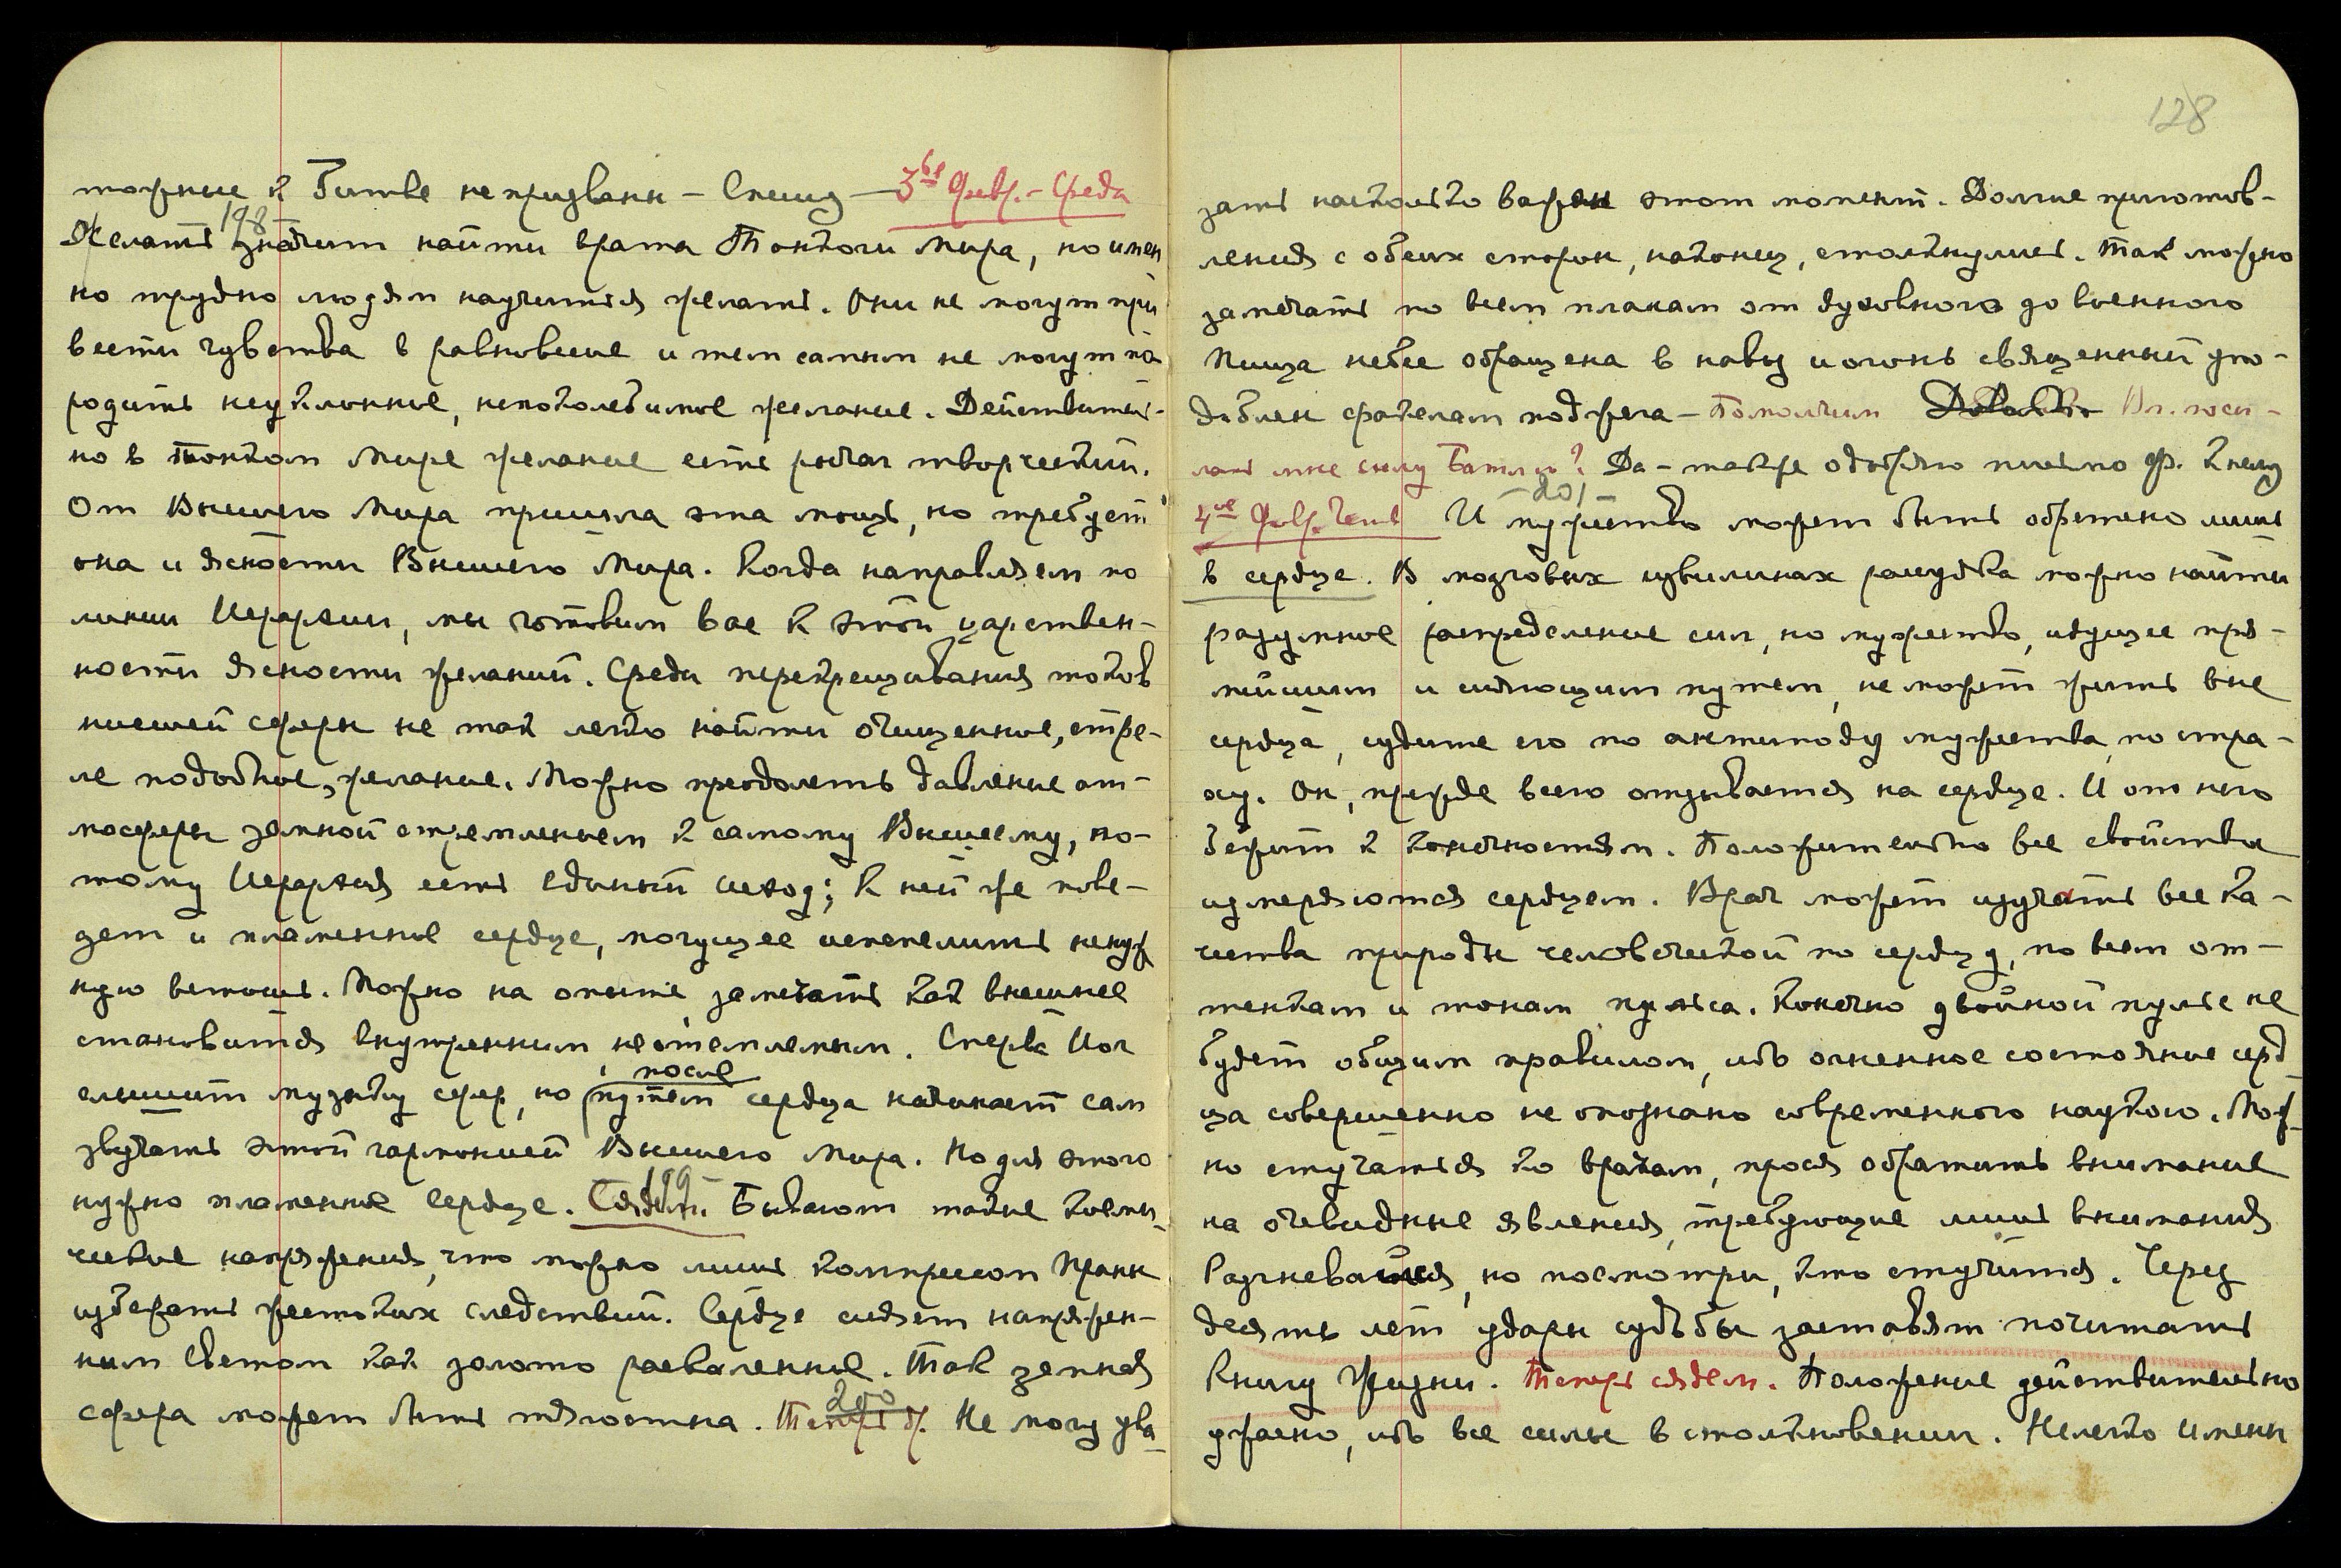 тожные к Битве не призваны – Спешу – 3ье Февр. – Среда
198
Желать значит найти врата Тонкого Мира, но имен
но трудно людям научиться желать. Они не могут при
вести чувства в равновесие и тем самым не могут по
родить неуклонное, непоколебимое желание. Действитель-
но в Тонком Мире желание есть рычаг творческий.
От Высшего Мира пришла эта мощь, но требует
она и ясности Высшего Мира. Когда направляем по
линии Иерархии, мы готовим вас к этой царствен-
ности ясности желаний. Среди перекрещивания токов
низшей сферы не так легко найти очищенное, стре-
ле подобное, желание. Можно преодолеть давление ат-
мосферы земной стремлением к самому Высшему, по-
тому Иерархия есть единый исход; к ней же пове-
дет и пламенное сердце, могущее испепелить ненуж
ную ветошь. Можно на опыте замечать как внешнее
становится внутренним неотъемлемым. Сперва Йог
слышит музыку сфер, но путем после сердца начинает сам
звучать этой гармонией Высшего Мира. Но для этого
нужно пламенное сердце. 199 Бывают такие косми-
ческие напряжения, что можно лишь компрессом Праны
избежать жестоких следствий. Сердце сияет напряжен-
ным светом как золото расплавленное. Так земная
сфера может быть тягостна. 200 Не могу ука-
128
зать настолько важен этот момент. Долгие приготов-
ления с обеих сторон, наконец, столкнулись. Так можно
замечать по всем планам от духовного до военного
Пища небес обращена в навоз и огонь священный упо-
доблен факелам поджега – Помолчим Вл. посы-
лает мне силу Батлы? Да – также одобряю письмо Ф. Кнему
201
4ое Февр. Четв И мужество может быть обретено лишь
в сердце. В мозговых извилинах рассудка можно найти
разумное распределение сил, но мужество, идущее пря-
мейшим и сияющим путем, не может жить вне
сердца, судите его по антиподу мужества, по стра-
ху. Он, прежде всего отзывается на сердце. И от него
бежит к конечностям. Положительно все свойства
измеряются сердцем. Врач может изучать все ка-
чества природы человеческой по сердцу, по всем от-
тенкам и тонам пульса. Конечно двойной пульс не
будет общим правилом, ибо огненное состояние серд
ца совершенно не опознано современного наукою. Мож-
но стучаться ко врачам, прося обратить внимание
на очевидные явления, требующие лишь внимания
Разгневайся, но посмотри, кто стучится. Через
десять лет удары судьбы заставят почитать
Книгу Жизни. Теперь сядем. Положение действительно
ужасно, ибо все силы в столкновении. Нелегко имени